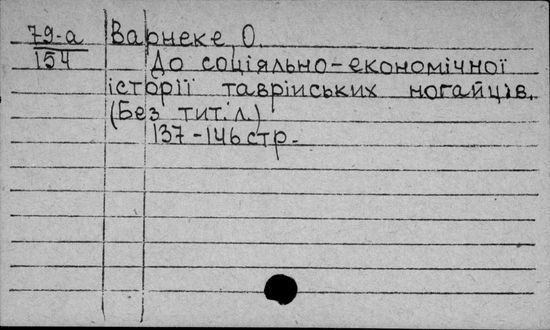 79-а Варнеке, О.
154 До соціяльно-економічної
історії таврійських ногайців.
(Без тит.л.)
137-146 стр.